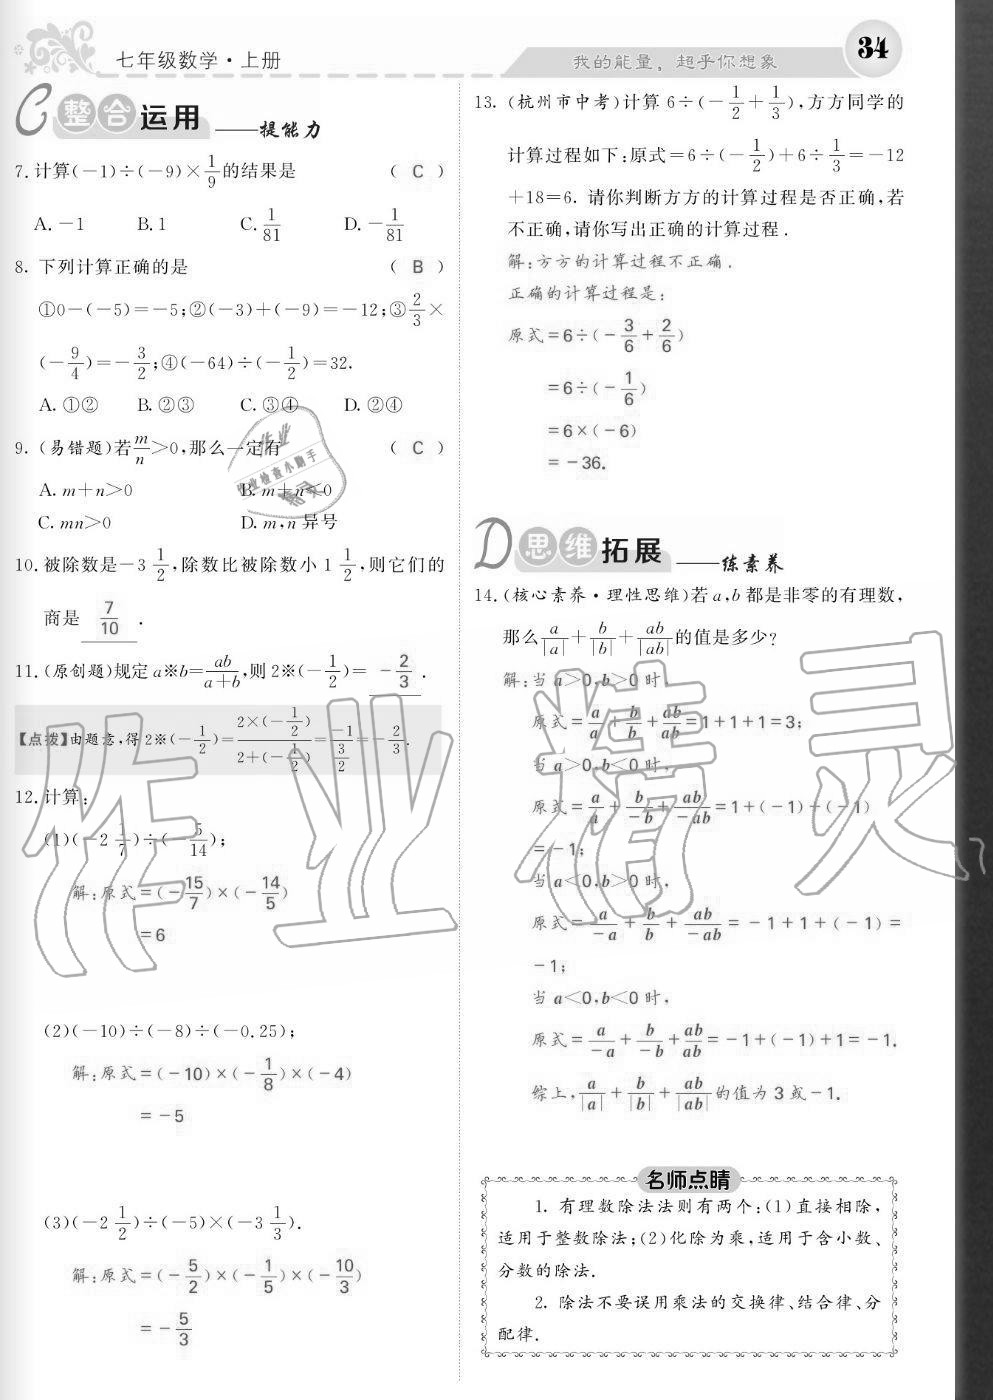 七年级数学·上册
我的能量，超乎你想象
34
C 整合运用
——提能力
7. 计算(－1)÷(－9)×1/9的结果是 （ C ）
A. －1 B. 1 C. 1/81 D. －1/81
8. 下列计算正确的是 （ B ）
①0－(－5)＝－5;②(－3)＋(－9)＝－12;③2/3×
(－9/4)＝－3/2;④(－64)÷(－1/2)＝32.
A. ①② B. ②③ C. ③④ D. ②④
9. (易错题)若m/n＞0,那么一定有 （ C ）
A. m＋n＞0 B. m＋n＜0
C. mn＞0 D. m,n 异号
10. 被除数是－3 1/2,除数比被除数小 1 1/2,则它们的
商是 7/10 .
11. (原创题)规定 a※b＝ab/(a＋b),则 2※(－1/2)＝ －2/3 .
【点拨】由题意,得 2※(－1/2)＝(2×(－1/2))/(2＋(－1/2))＝(－1)/(3/2)＝－2/3.
12. 计算:
(1)(－2 1/7)÷(－5/14);
解:原式＝(－15/7)×(－14/5)
＝6
(2)(－10)÷(－8)÷(－0.25);
解:原式＝(－10)×(－1/8)×(－4)
＝－5
(3)(－2 1/2)÷(－5)×(－3 1/3).
解:原式＝(－5/2)×(－1/5)×(－10/3)
＝－5/3
13. (杭州市中考)计算 6÷(－1/2＋1/3),方方同学的
计算过程如下:原式＝6÷(－1/2)＋6÷1/3＝－12
＋18＝6. 请你判断方方的计算过程是否正确,若
不正确,请你写出正确的计算过程.
解:方方的计算过程不正确.
正确的计算过程是:
原式＝6÷(－3/6＋2/6)
＝6÷(－1/6)
＝6×(－6)
＝－36.
D 思维拓展
——练素养
14. (核心素养·理性思维)若 a,b 都是非零的有理数,
那么a/|a|＋b/|b|＋ab/|ab|的值是多少?
解:当 a＞0,b＞0 时,
原式＝a/a＋b/b＋ab/ab＝1＋1＋1＝3;
当 a＞0,b＜0 时,
原式＝a/a＋b/－b＋ab/－ab＝1＋(－1)＋(－1)
＝－1;
当 a＜0,b＞0 时,
原式＝a/－a＋b/b＋ab/－ab＝－1＋1＋(－1)＝
－1;
当 a＜0,b＜0 时,
原式＝a/－a＋b/－b＋ab/ab＝－1＋(－1)＋1＝－1.
综上,a/|a|＋b/|b|＋ab/|ab|的值为 3 或－1.
名师点睛
1. 有理数除法法则有两个:(1)直接相除,
适用于整数除法;(2)化除为乘,适用于含小数、
分数的除法.
2. 除法不要误用乘法的交换律、结合律、分
配律.
作业精灵
作业
作业检查小助手
精灵